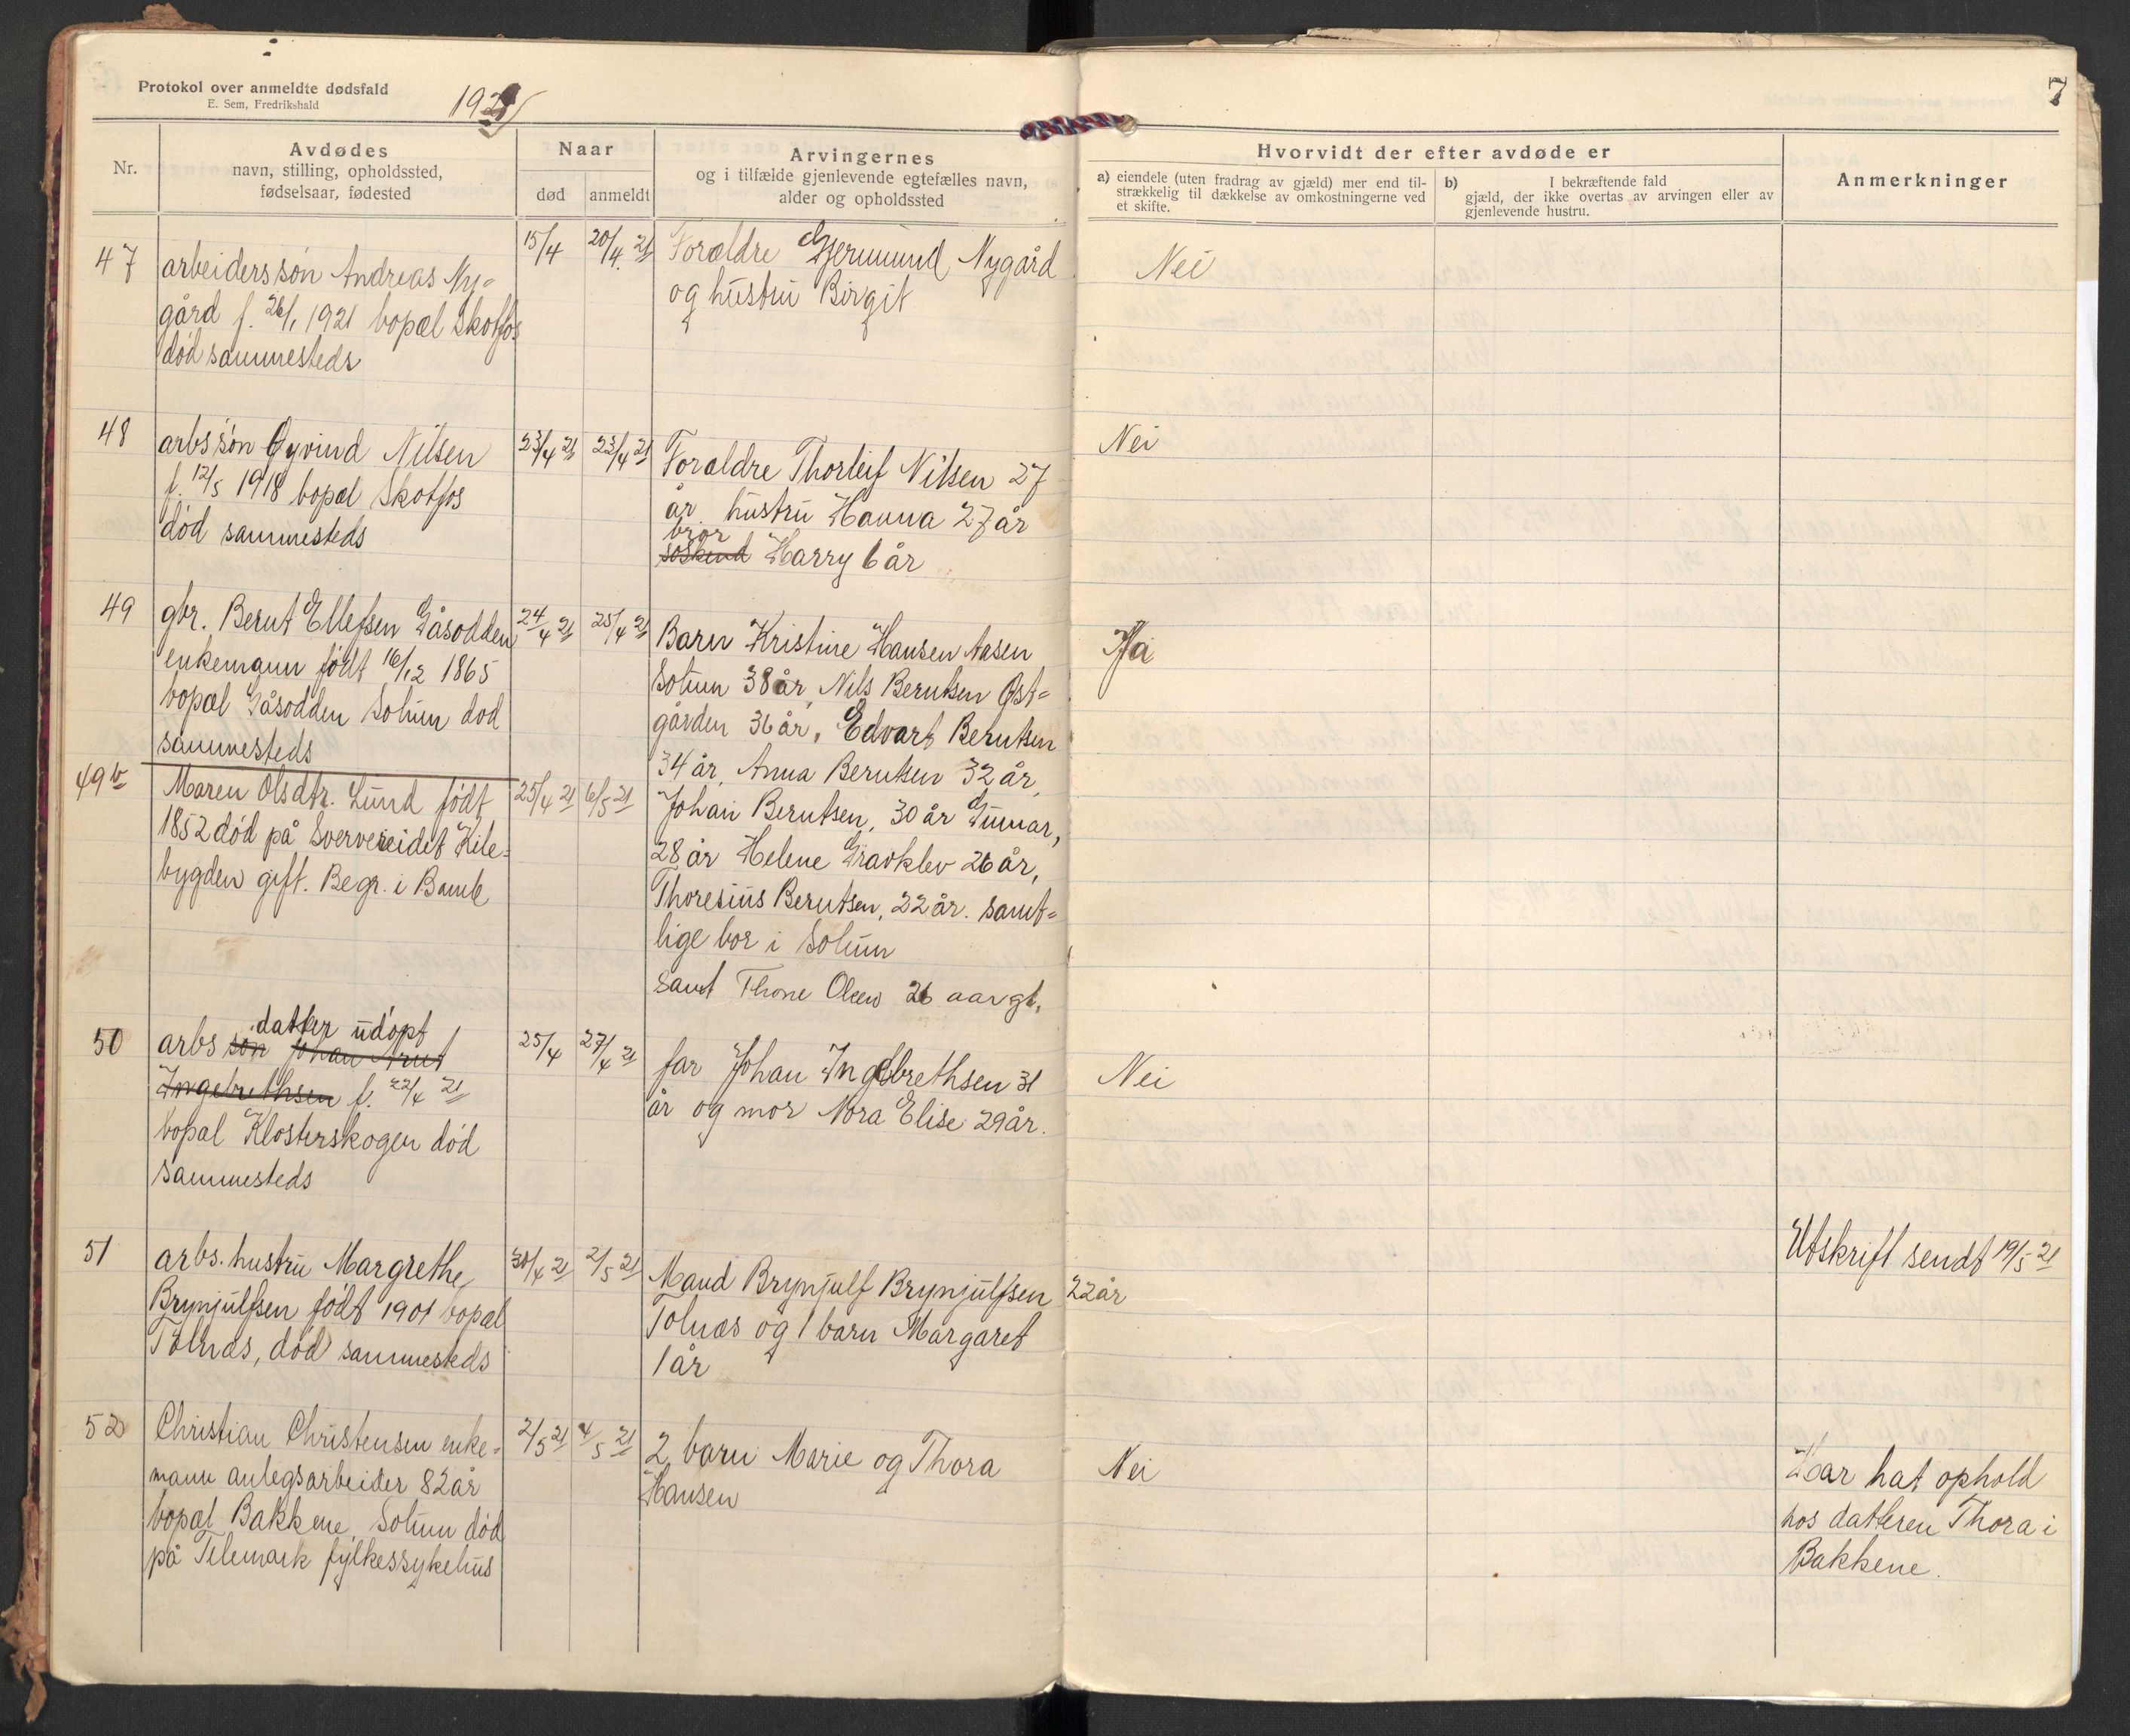 Protokol over anmeldte dødsfald
E. Sem, Fredrikshald
1921
7
Nr.
Avdødes
navn, stilling, opholdssted,
fødselsaar, fødested
Naar
død
anmeldt
Arvingernes
og i tilfælde gjenlevende egtefælles navn,
alder og opholdssted
Hvorvidt der efter avdøde er
a) eiendele (uten fradrag av gjæld) mer end til-
strækkelig til dækkelse av omkostningerne ved
et skifte.
b) I bekræftende fald
gjæld, der ikke overtas av arvingen eller av
gjenlevende hustru.
Anmerkninger
47
arbeiders søn Andreas Ny=
gård f. 26/1 1921 bopæl Skotfos
død sammesteds
15/4
20/4 21
Forældre Gjermund Nygård
og hustru Birgit
Nei
48
arbs søn Øyvind Nilsen
f. 12/5 1918 bopæl Skotfos
død sammesteds
23/4 21
23/4 21
Forældre Thorleif Nilsen 27
år. hustru Hanna 27 år
bror
søskend Harry 6 år
Nei
49
gbr. Bernt Ellefsen Gåsodden
enkemann født 16/12 1865
bopæl Gåsodden Solum død
sammesteds
24/4 21
25/4 21
Barn Kristine Hansen Aasen
Solum 38 år, Nils Berntsen Øst=
gården 36 år, Edvart Berntsen
34 år, Anna Berntsen 32 år,
Johan Berntsen, 30 år Gunnar,
28 år Helene Gravklev 26 år,
Thoresius Berntsen, 22 år. samt=
lige bor i Solum
samt Thone Olsen 26 aar gl.
Ja
49b
Maren Olsdtr. Lund født
1852 død på Sververeidet Kile=
bygden gift. Begr. i Bamle
25/4 21
6/5 21
50
datter udøpt
arbs søn Johan Arnt
Ingebrethsen f. 22/4 21
bopæl Klosterskogen død
sammesteds
25/4
27/4 21
far Johan Ingebrethsen 31
år og mor Nora Elise 29 år.
Nei
51
arbs. hustru Margrethe
Brynjulfsen født 1901 bopæl
Tolnæs, død sammesteds
30/4 21
2/5 21
Mand Brynjulf Brynjulfsen 22 år
Tolnæs og 1 barn Margaret
1 år
Utskrift sendt 19/5 21
52
Christian Christensen enke=
mann anlegsarbeider 82 år
bopæl Bakkene, Solum død
på Telemark fylkessykehus
2/5 21
4/5 21
2 barn Marie og Thora
Hansen
Nei
Har hat ophold
hos datteren Thora i
Bakkene.